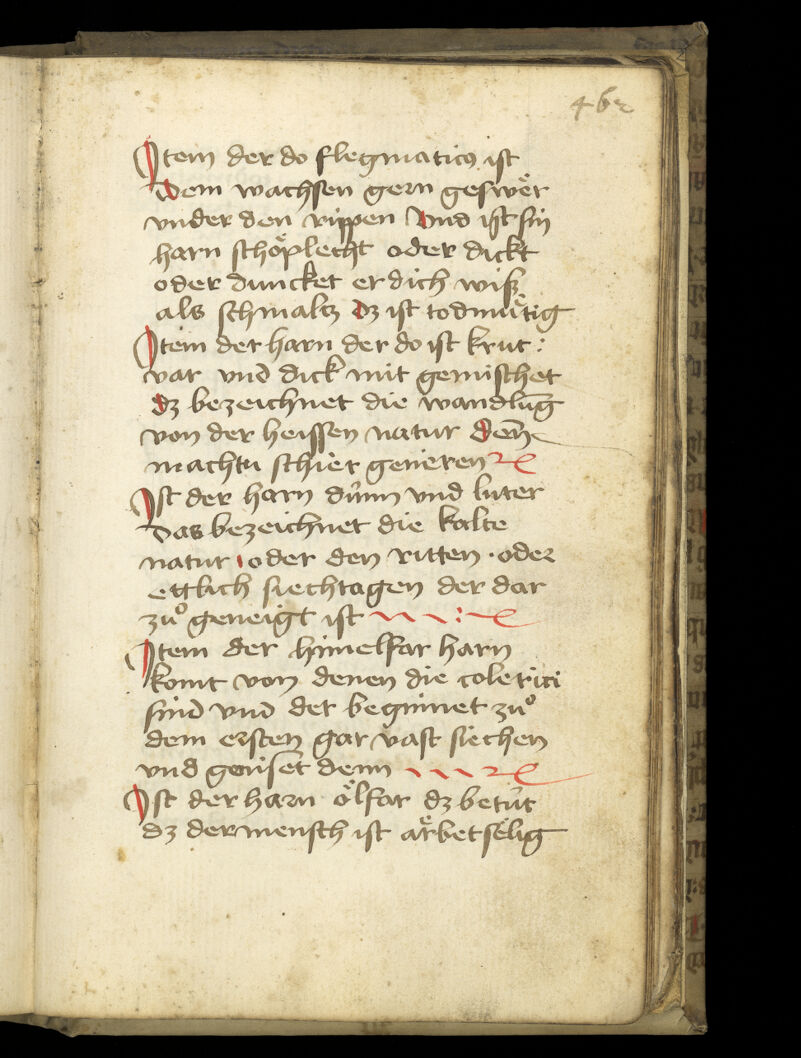 462
Item der do flegmaticꝰ ist
Dem wachsen gern geswër
vnder den rippen Vnd ist sin
harn schöplecht oder dickt
oder duncket er dich wiß
als schmaltz dz ist todmu̎tig
Item der harn der do ist krut :
var vnd dick mit gemischet
dz bezeichnet die wandlūg
von der heissen natur den̄
machtu schier generen
Ist der harn du̍nn vnd luter
Das bezeichnet die kalte
natur oder den ritten · oder
ettlich siechtagen der dar
zuͦ geneigt ist
Item der himelfar harn
komt von denen die colerici
sind vnd der beginnet zuͦ
dem ersten gar vast siechen
vnd geniset denn
Ist der harn ölfar dz betu̍t
dz der mensch ist ärbetselig